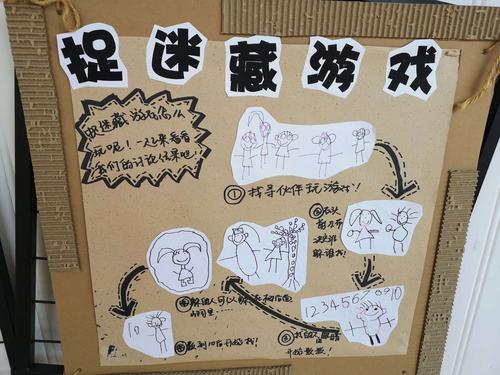 捉迷藏游戏
捉迷藏游戏怎么
玩呢！一起来看看
我们的讨论结果吧！
①找寻伙伴玩游戏！
②石头
剪刀布
决定谁
躲谁找！
12345678910
③找的人
开始数数！
④躲的人可以躲
10
⑤数到10后开始找！